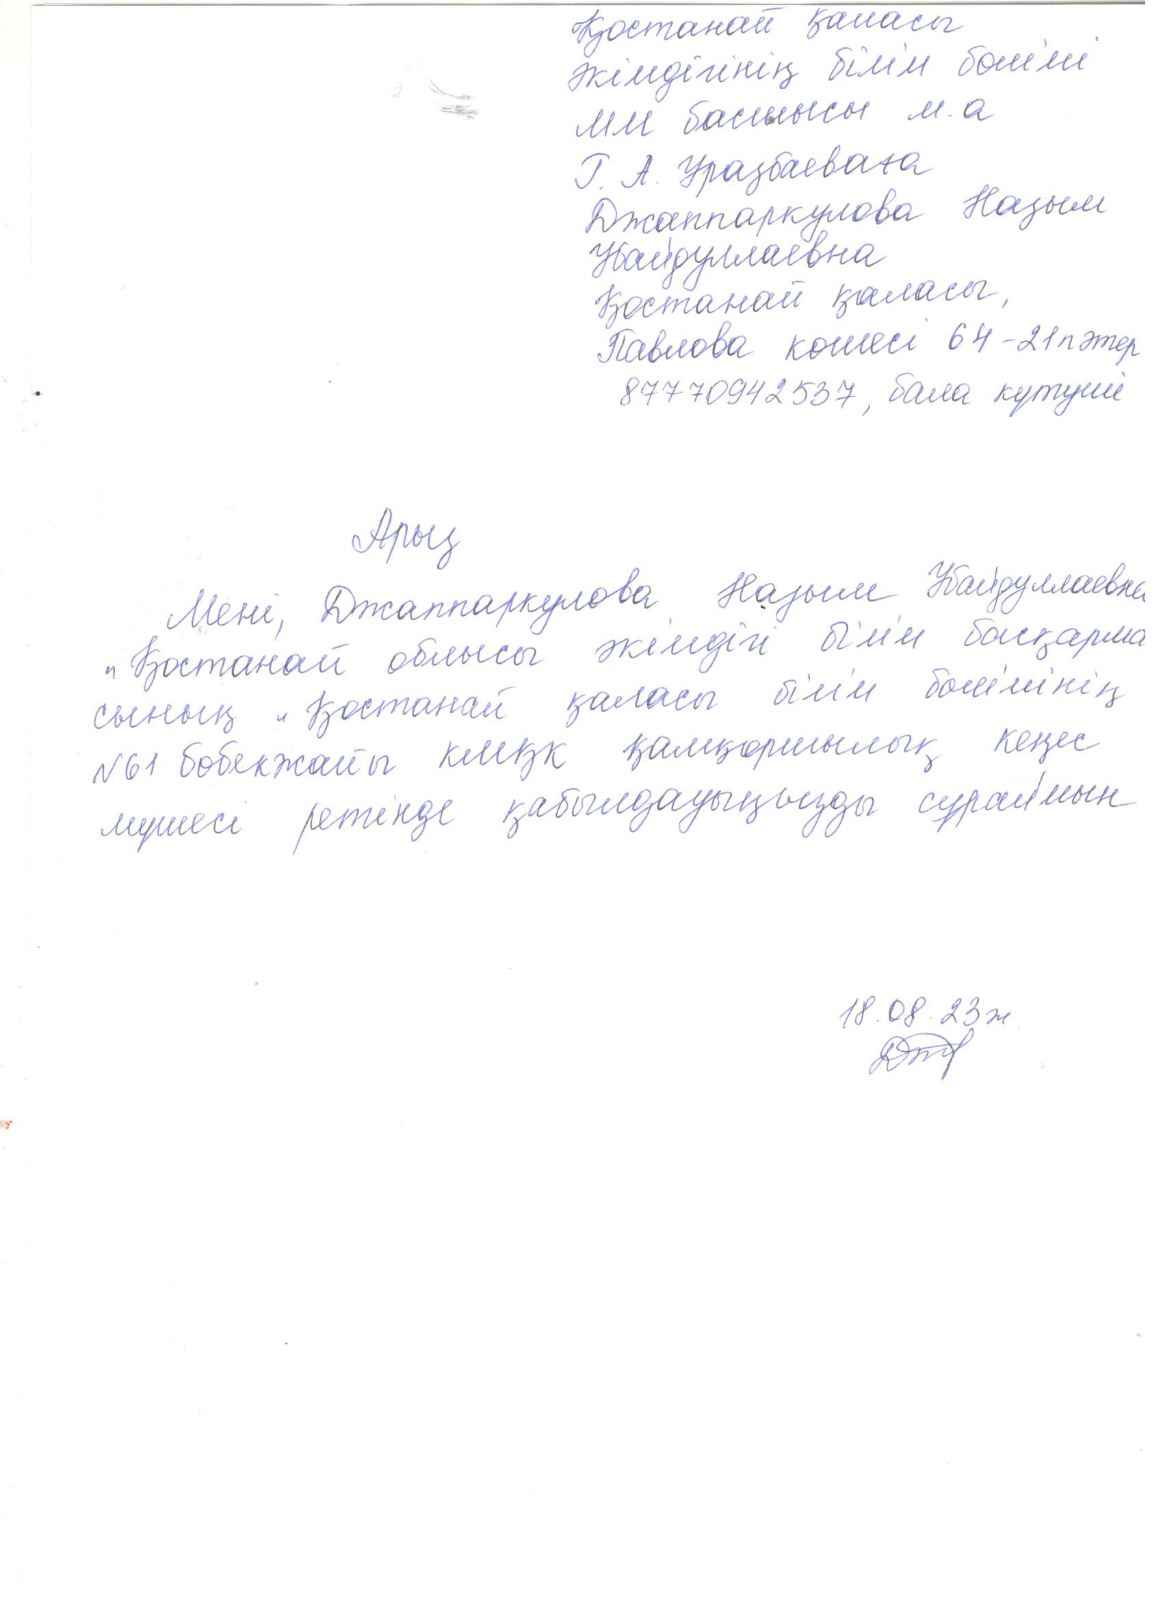 Қостанай қаласы
әкімдігінің білім бөлімі
ММ басшысы м.а
Г. А. Уразбаеваға
Джаппаркулова Назым
Убайдуллаевна
Қостанай қаласы,
Павлова көшесі 64-21 пәтер
87770942537, бала күтуші
Арыз
Мені, Джаппаркулова Назым Убайдуллаевна
"Қостанай облысы әкімдігі білім басқарма
сының "Қостанай қаласы білім бөлімінің
№61 бөбекжайы КМҚК қамқоршылық кеңес
мүшесі ретінде қабылдауыңызды сұраймын
18.08.23ж